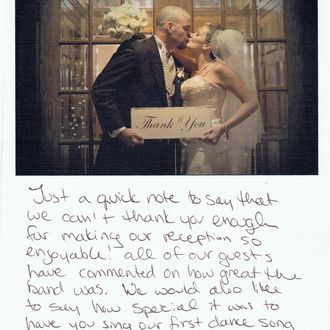 Thank You
Just a quick note to say that
we can't thank you enough
for making our reception so
enjoyable! all of our guests
have commented on how great the
band was. We would also like
to say how special it was to
have you sing our first dance song